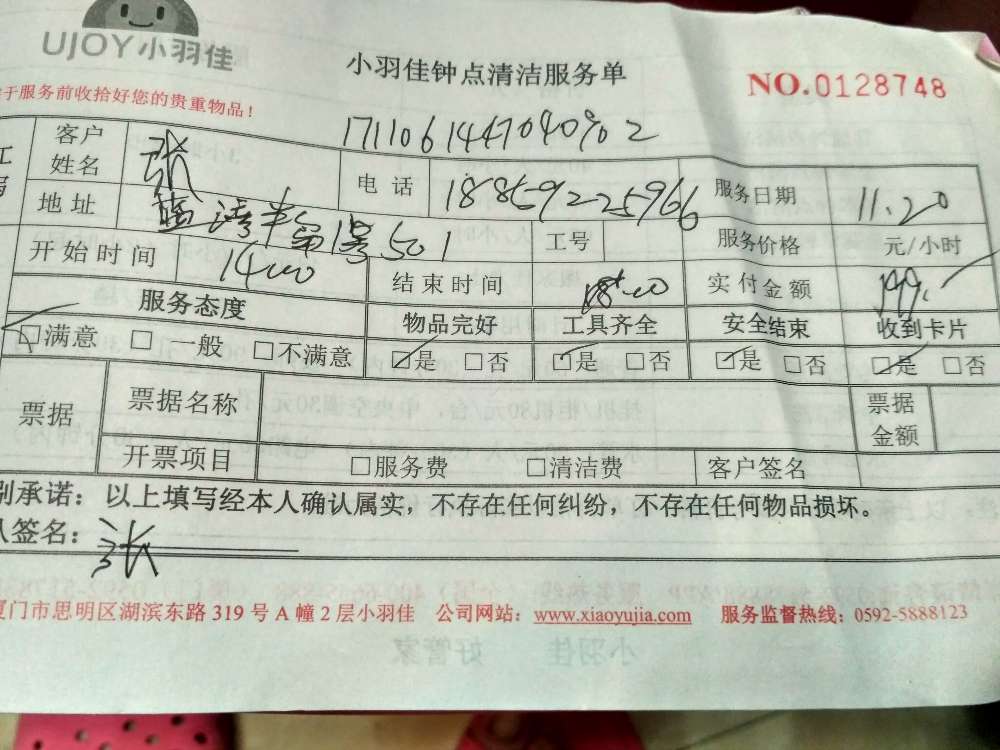 UJOY小羽佳
小羽佳钟点清洁服务单
NO.0128748
于服务前收拾好您的贵重物品！
客户姓名 张
电话 18859225966
服务日期 11.20
地址
501
工号
服务价格 元/小时
开始时间 14:00
结束时间
实付金额 199.
服务态度 物品完好 工具齐全 安全结束 收到卡片
☑满意 □一般 □不满意 ☑是 □否 ☑是 □否 ☑是 □否 ☑是 □否
票据 票据名称 票据金额
开票项目 □服务费 □清洁费 客户签名
别承诺：以上填写经本人确认属实，不存在任何纠纷，不存在任何物品损坏。
人签名：张
厦门市思明区湖滨东路 319 号 A 幢 2 层小羽佳 公司网站：www.xiaoyujia.com 服务监督热线：0592-5888123
小羽佳 好管家